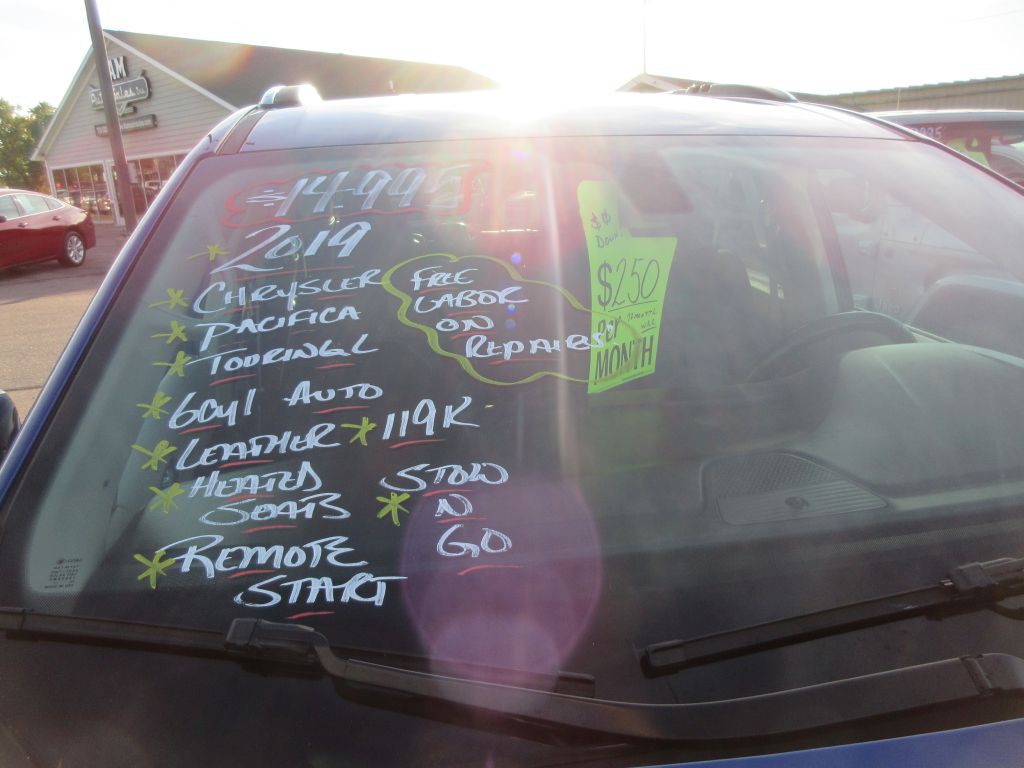 $14,995
2019
CHRYSLER
PACIFICA
TOURING L
6cyl AUTO
LEATHER
119K
HEATED
SEATS
STOW
N
GO
REMOTE
START
FREE
LABOR
ON
REPAIRS
$0
Down
$250
PER
MONTH